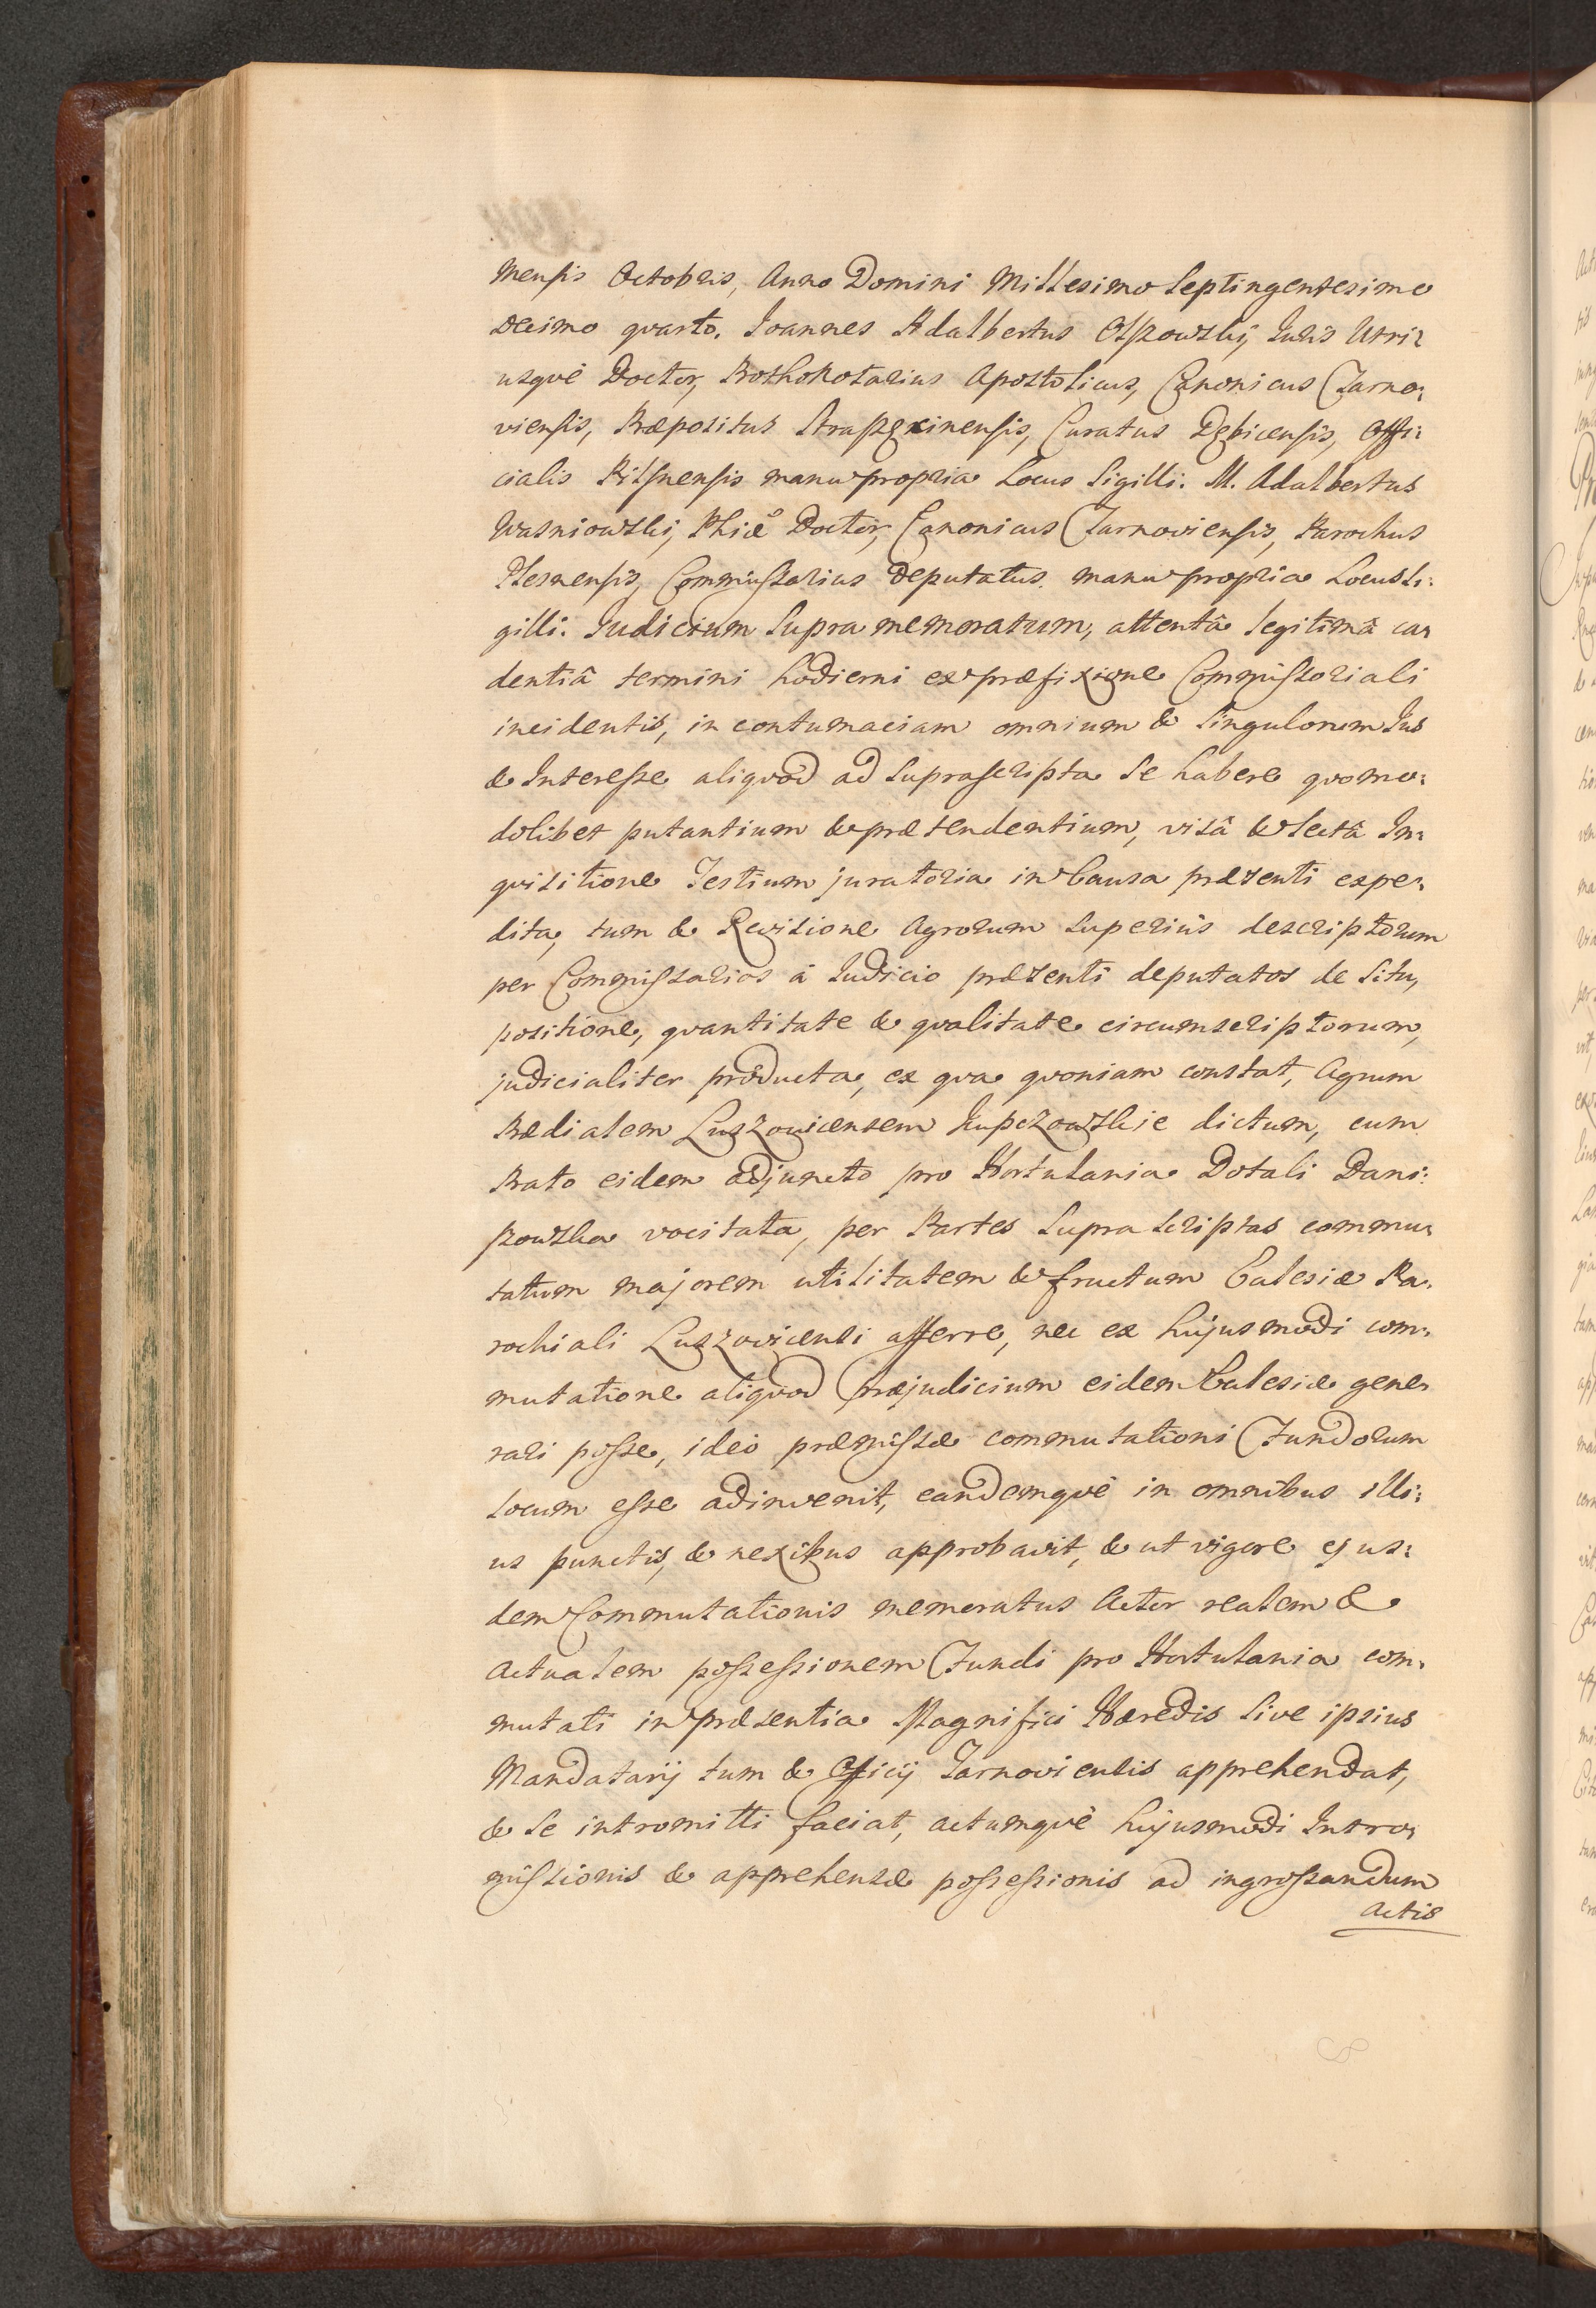 Mensis Octobris, Anno Domini Millesimo Septingentesimo
Decimo quarto. Joannes Adalbertus Olszowski, Juris Utri:
usque Doctor, Prothonotarius Apostolicus, Canonicus Tarno:
viensis, Præpositus Straszęcinensis, Curatus Dębicensis, Offi:
cialis Pilsnensis manu propria Locus Sigilli. M. Adalbertus
Wasniowski, Phiæ Doctor, Canonicus Tarnoviensis, Parochus
Plesnensis, Commissarius Deputatus manu propria Locus Si:
gilli. Judicium Supra memoratum, attentâ legitimâ ca:
dentiâ termini hodierni ex præfixione Commissoriali
incidentis, in contumaciam omnium & Singulorum Jus
& Interesse aliquod ad Suprascripta Se habere quomo:
dolibet putantium & prætendentium, visâ & lectâ In:
quisitione Testium juratoria in Causa præsenti expe:
dita, tum & Revisione Agrorum Superiùs descriptorum
per Commissarios à Judicio præsenti deputatos de Situ,
positione, quantitate & qualitate circumscriptorum,
judicialiter producta, ex qva qvoniam constat, Agrum
Prædialem Luszovicensem Kupczowskie dictum, cum
Prato eidem adjuncto pro Hortulania Dotali Dani:
szowska vocitata, per Partes Supra scriptas commu:
tatum majorem utilitatem & fructum Ecclesiæ Pa:
rochiali Luszovicensi afferre, nec ex hujusmodi com:
mutatione aliquod præjudicium eidem Ecclesiæ gene:
rari posse, ideò præmissæ commutationi Fundorum
locum esse adinvenit, eandemquè in omnibus illi:
us punctis, & nexibus approbavit, & ut vigore ejus:
dem Commutationis memoratus Actor realem &
Actualem possessionem Fundi pro Hortulania com:
mutati in præsentia Magnifici Hæredis Sive ipsius
Mandatarij tum & Officij Tarnoviensis apprehendat,
& Se intromitti faciat, actumquè hujusmodi Intro:
missionis & apprehensæ possessionis ad ingrossandum
Actis